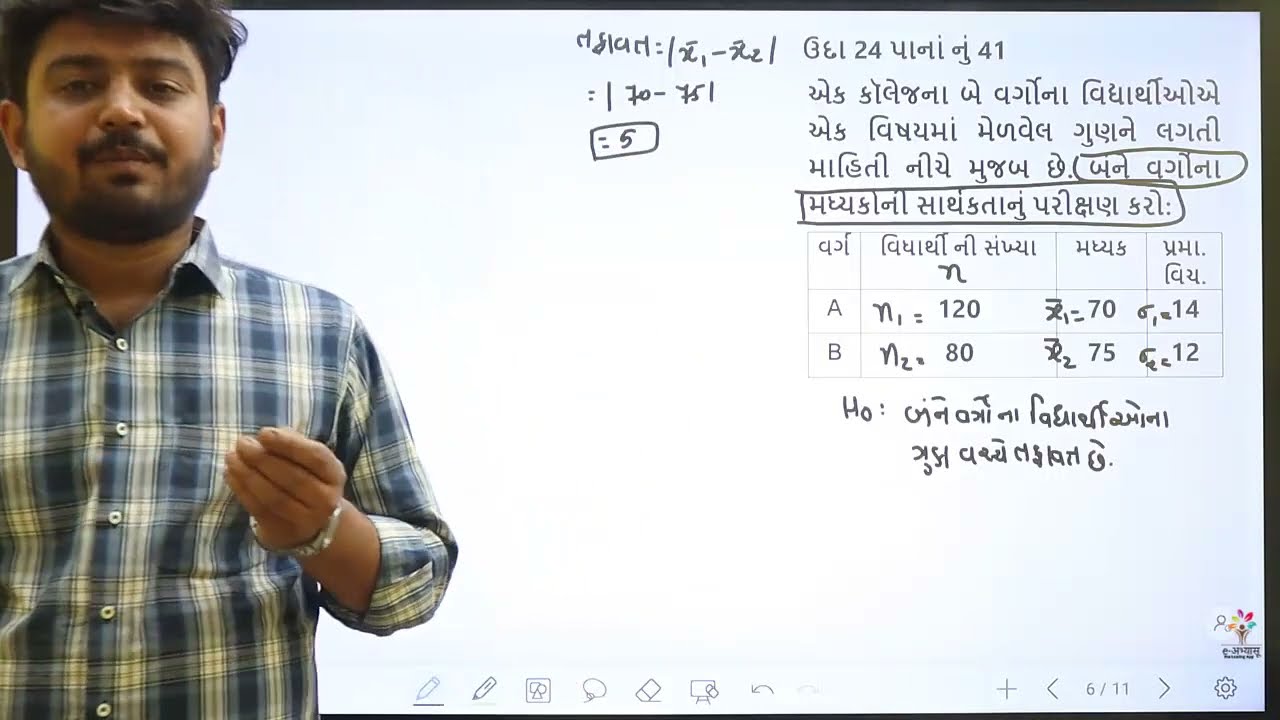 તફાવત = |x̄₁ - x̄₂|
= |70 - 75|
= 5
ઉદા 24 પાનાં નું 41
એક કૉલેજના બે વર્ગોના વિદ્યાર્થીઓએ
એક વિષયમાં મેળવેલ ગુણને લગતી
માહિતી નીચે મુજબ છે. બંને વર્ગોના
મધ્યકોની સાર્થકતાનું પરીક્ષણ કરો:
વર્ગ વિધાર્થી ની સંખ્યા n મધ્યક પ્રમા. વિચ.
A n₁ = 120 x̄₁ = 70 σ₁ = 14
B n₂ = 80 x̄₂ 75 σ₂ = 12
H₀ : બંને વર્ગો ના વિદ્યાર્થીઓના
ગુણ વચ્ચે તફાવત છે.
e-અભ્યાસ
6 / 11